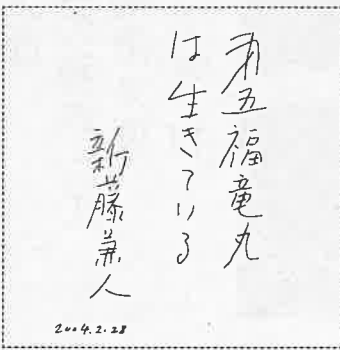 第五福竜丸
は生きている
新藤兼人
2004.2.28